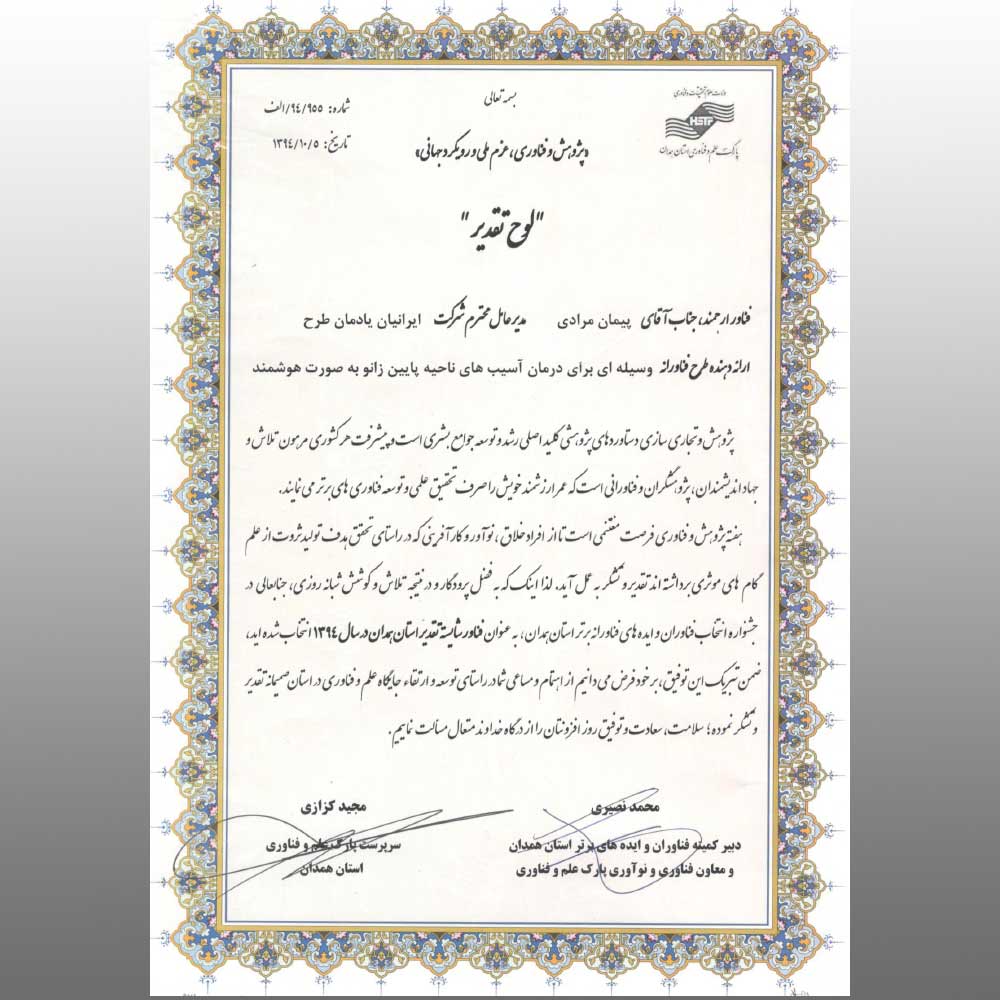 بسمه تعالی
وزارت علوم تحقیقات و فناوری
HSTP
پارک علم و فناوری استان همدان
شماره: ۹۵۵/۹۴/الف
تاریخ: ۱۳۹۴/۱۰/۵
«پژوهش و فناوری، عزم ملی و رویکرد جهانی»
"لوح تقدیر"
فناور ارجمند، جناب آقای پیمان مرادی مدیر عامل محترم شرکت ایرانیان یادمان طرح
ارائه دهنده طرح فناورانه وسیله ای برای درمان آسیب های ناحیه پایین زانو به صورت هوشمند
پژوهش و تجاری سازی دستاوردهای پژوهشی کلید اصلی رشد و توسعه جوامع بشری است و پیشرفت هر کشوری مرهون تلاش و
جهاد اندیشمندان، پژوهشگران و فناورانی است که عمر ارزشمند خویش را صرف تحقیق علمی و توسعه فناوری های برتر می نمایند.
هفته پژوهش و فناوری فرصت مغتنمی است تا از افراد خلاق، نوآور و کارآفرینی که در راستای تحقق هدف تولید ثروت از علم
گام های موثری برداشته اند تقدیر و تشکر به عمل آید. لذا اینک که به فضل پروردگار و در نتیجه تلاش و کوشش شبانه روزی، جنابعالی در
جشنواره انتخاب فناوران و ایده های فناورانه برتر استان همدان، به عنوان فناور شایسته تقدیر استان همدان در سال ۱۳۹۴ انتخاب شده اید،
ضمن تبریک این توفیق، بر خود فرض می دانیم از اهتمام و مساعی شما در راستای توسعه و ارتقاء جایگاه علم و فناوری در استان صمیمانه تقدیر
و تشکر نموده؛ سلامت، سعادت و توفیق روز افزونتان را از درگاه خداوند متعال مسألت نماییم.
محمد نصیری
دبیر کمیته فناوران و ایده های برتر استان همدان
و معاون فناوری و نوآوری پارک علم و فناوری
مجید کزازی
سرپرست پارک علم و فناوری
استان همدان